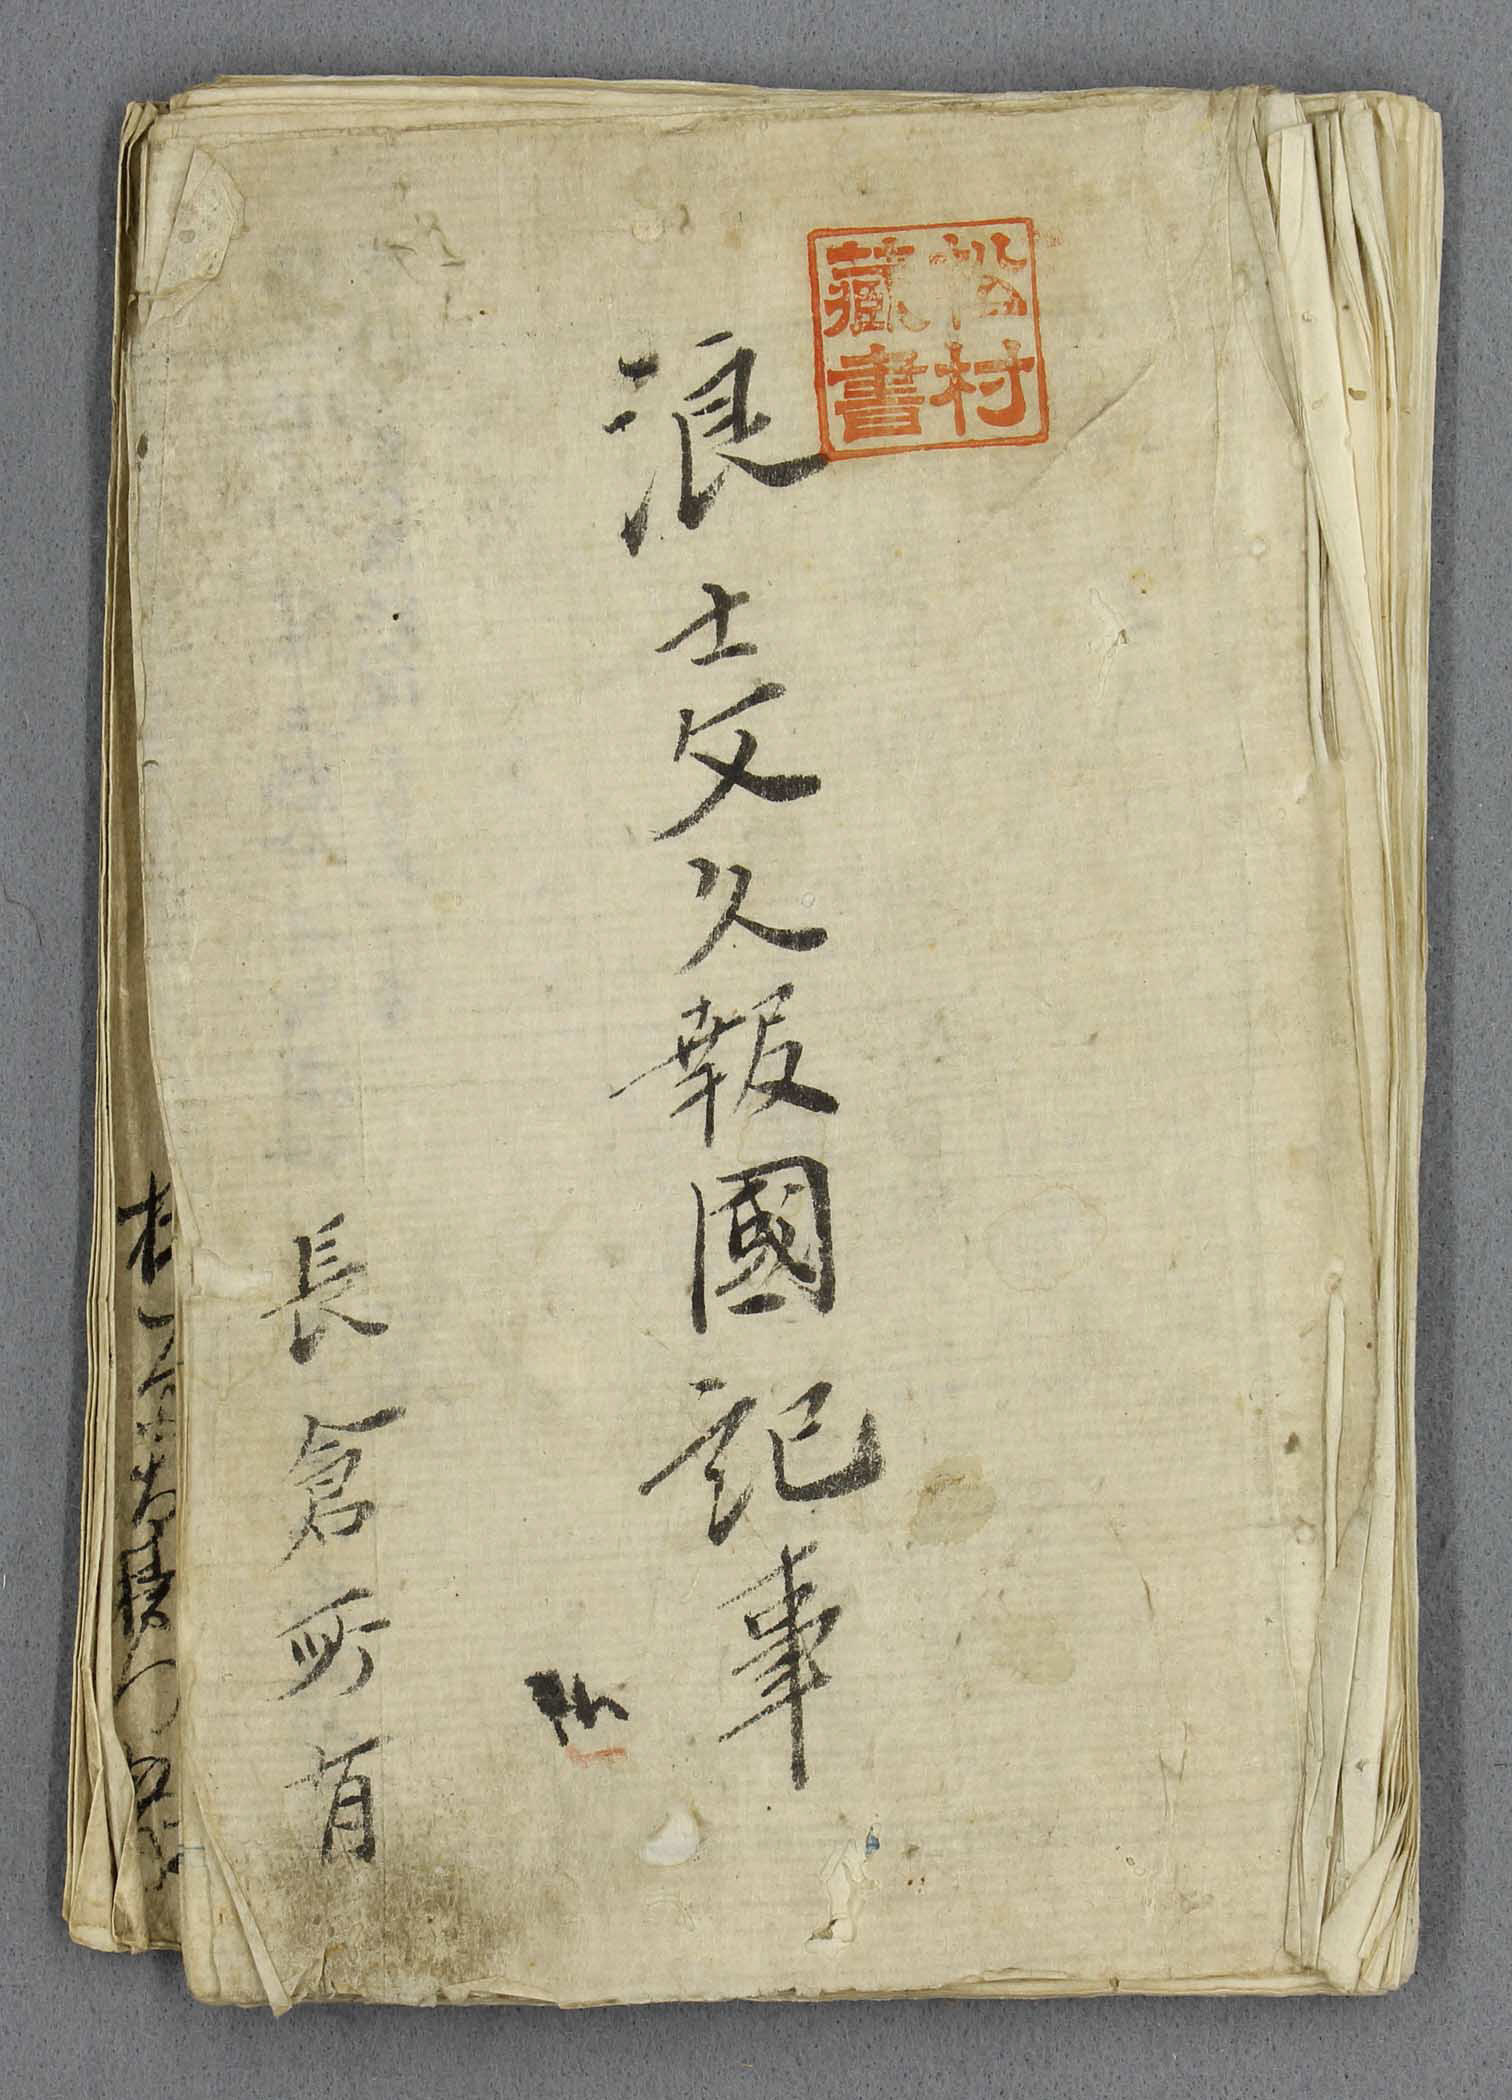 松村
藏書
浪士文久報國記事
長倉所有